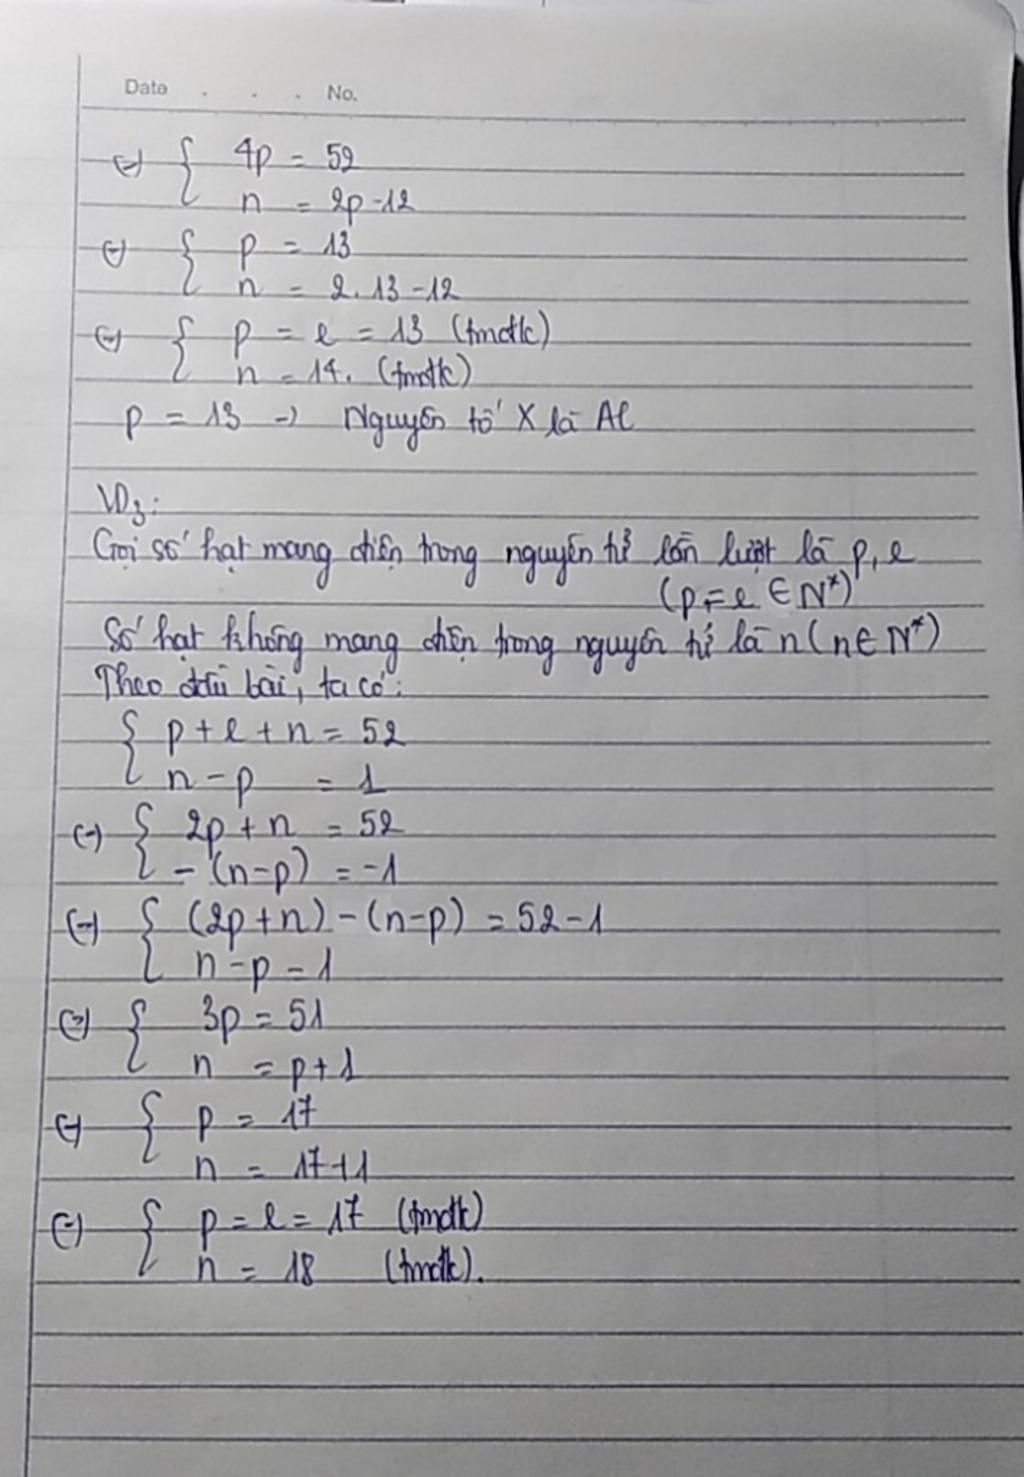 Date . . . No.
(=) { 4p = 52
n = 2p-12
(=) { p = 13
n = 2.13-12
(=) { p = e = 13 (tmđk)
n = 14. (tmđk)
p = 13 -> Nguyên tố X là Al
VD3:
Gọi số hạt mang điện trong nguyên tử lần lượt là p, e
(p=e ∈ N*)
Số hạt không mang điện trong nguyên tử là n (n ∈ N*)
Theo đầu bài, ta có:
{ p + e + n = 52
n - p = 1
(=) { 2p + n = 52
- (n-p) = -1
(=) { (2p+n) - (n-p) = 52-1
n-p = 1
(=) { 3p = 51
n = p+1
(=) { p = 17
n = 17+1
(=) { p = e = 17 (tmđk)
n = 18 (tmđk).